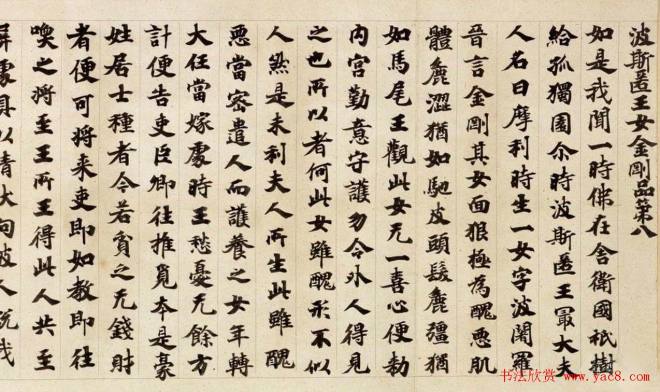 波斯匿王女金剛品第八
如是我聞一時佛在舍衛國祇樹
給孤獨園尒時波斯匿王最大夫
人名曰摩利時生一女字波闍羅
晉言金剛其女面狠極為醜惡肌
體麁澀猶如駞皮頭髮麁彊猶
如馬尾王觀此女无一喜心便勅
內宮勤意守護勿令外人得見
之也所以者何此女雖醜形不似
人然是末利夫人所生此雖醜
惡當密遣人而護養之女年轉
大任當嫁處時王愁憂无餘方
計便告吏臣卿往推覓本是豪
姓居士種者今若貧之无錢財
者便可將來吏即如教即往
喚之將至王所王得此人共至
屏處具以情大向彼人說我
书法欣赏 www.yac8.com